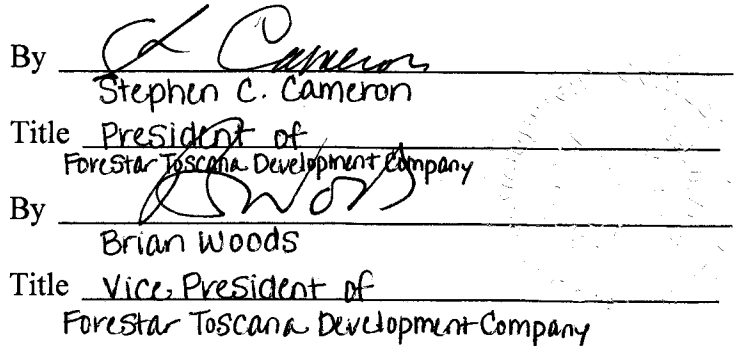 By S Cameron
Stephen C. Cameron
Title President of
Forestar Toscana Development Company
By B Woods
Brian Woods
Title Vice President of
Forestar Toscana Development Company